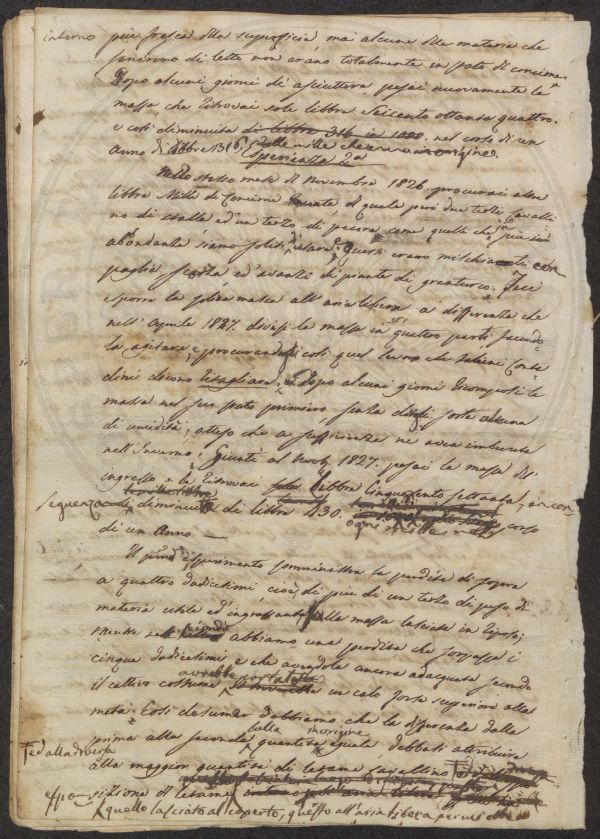 interno più fresca della superficia ma alcune delle materie che
servirono di letto non erano totalmente in stato di concime.
Dopo alcuni giorni di asciuttura pesai nuovamente la
massa, che ritrovai sole libbre Seicento ottanta quattro.
e così diminuita di libbre 316 in 1000. nel corso di un
Anno di libbre 316, dalle mille che erano in origine.
Sperienza 2a
Nello stesso mese di Novembre 1826. procurai altre
libbre Mille di Concime, del quale però due terzi Cavalli
no di stalla ed un terzo di pecora come quelli che più in
abondanza siamo soliti usare. Questi erano mischiati con
paglia ed avanzi di piante di granturco. Feci
esporre la massa all'aria libera a differenza che
nell'Aprile 1827. divisi la massa in quattro parti facendo
la agitare, e procurandoli così quel lavoro che i nostri Conta
dini dicono ritagliare. Dopo alcuni giorni ricomposi la
massa nel suo stato primiero senza darli sorta alcuna
di umidità, atteso che a sufficienza ne avea imbevuta
nell'Inverno. Giunti al Novb. 1827. pesai la massa del
ingrasso e la ritrovai libbre Cinquecento settanta, in con
seguenza diminuita di libbre 430. ogni mille nel corso
di un Anno —
Il primo esperimento somministra la perdita di sopra
a quattro dodicesimi cioè di più di un terzo di peso di
materia utile ed ingrassante alla massa lasciata in riposo;
mentre nel secondo abbiamo una perdita che sorpassa i
cinque dodicesimi e che avendola ancora adacquata secondo
il cattivo costume avrebbe portato un calo forse superiore alla
metà. Così desumer dobbiamo che la differenza dalla
prima alla seconda sulla quantità in origine eguale debbasi attribuire
alla maggior quantità di letame cavallino
ed alla diversa
esposizione di letame
quello lasciato al coperto, questo all'aria libera